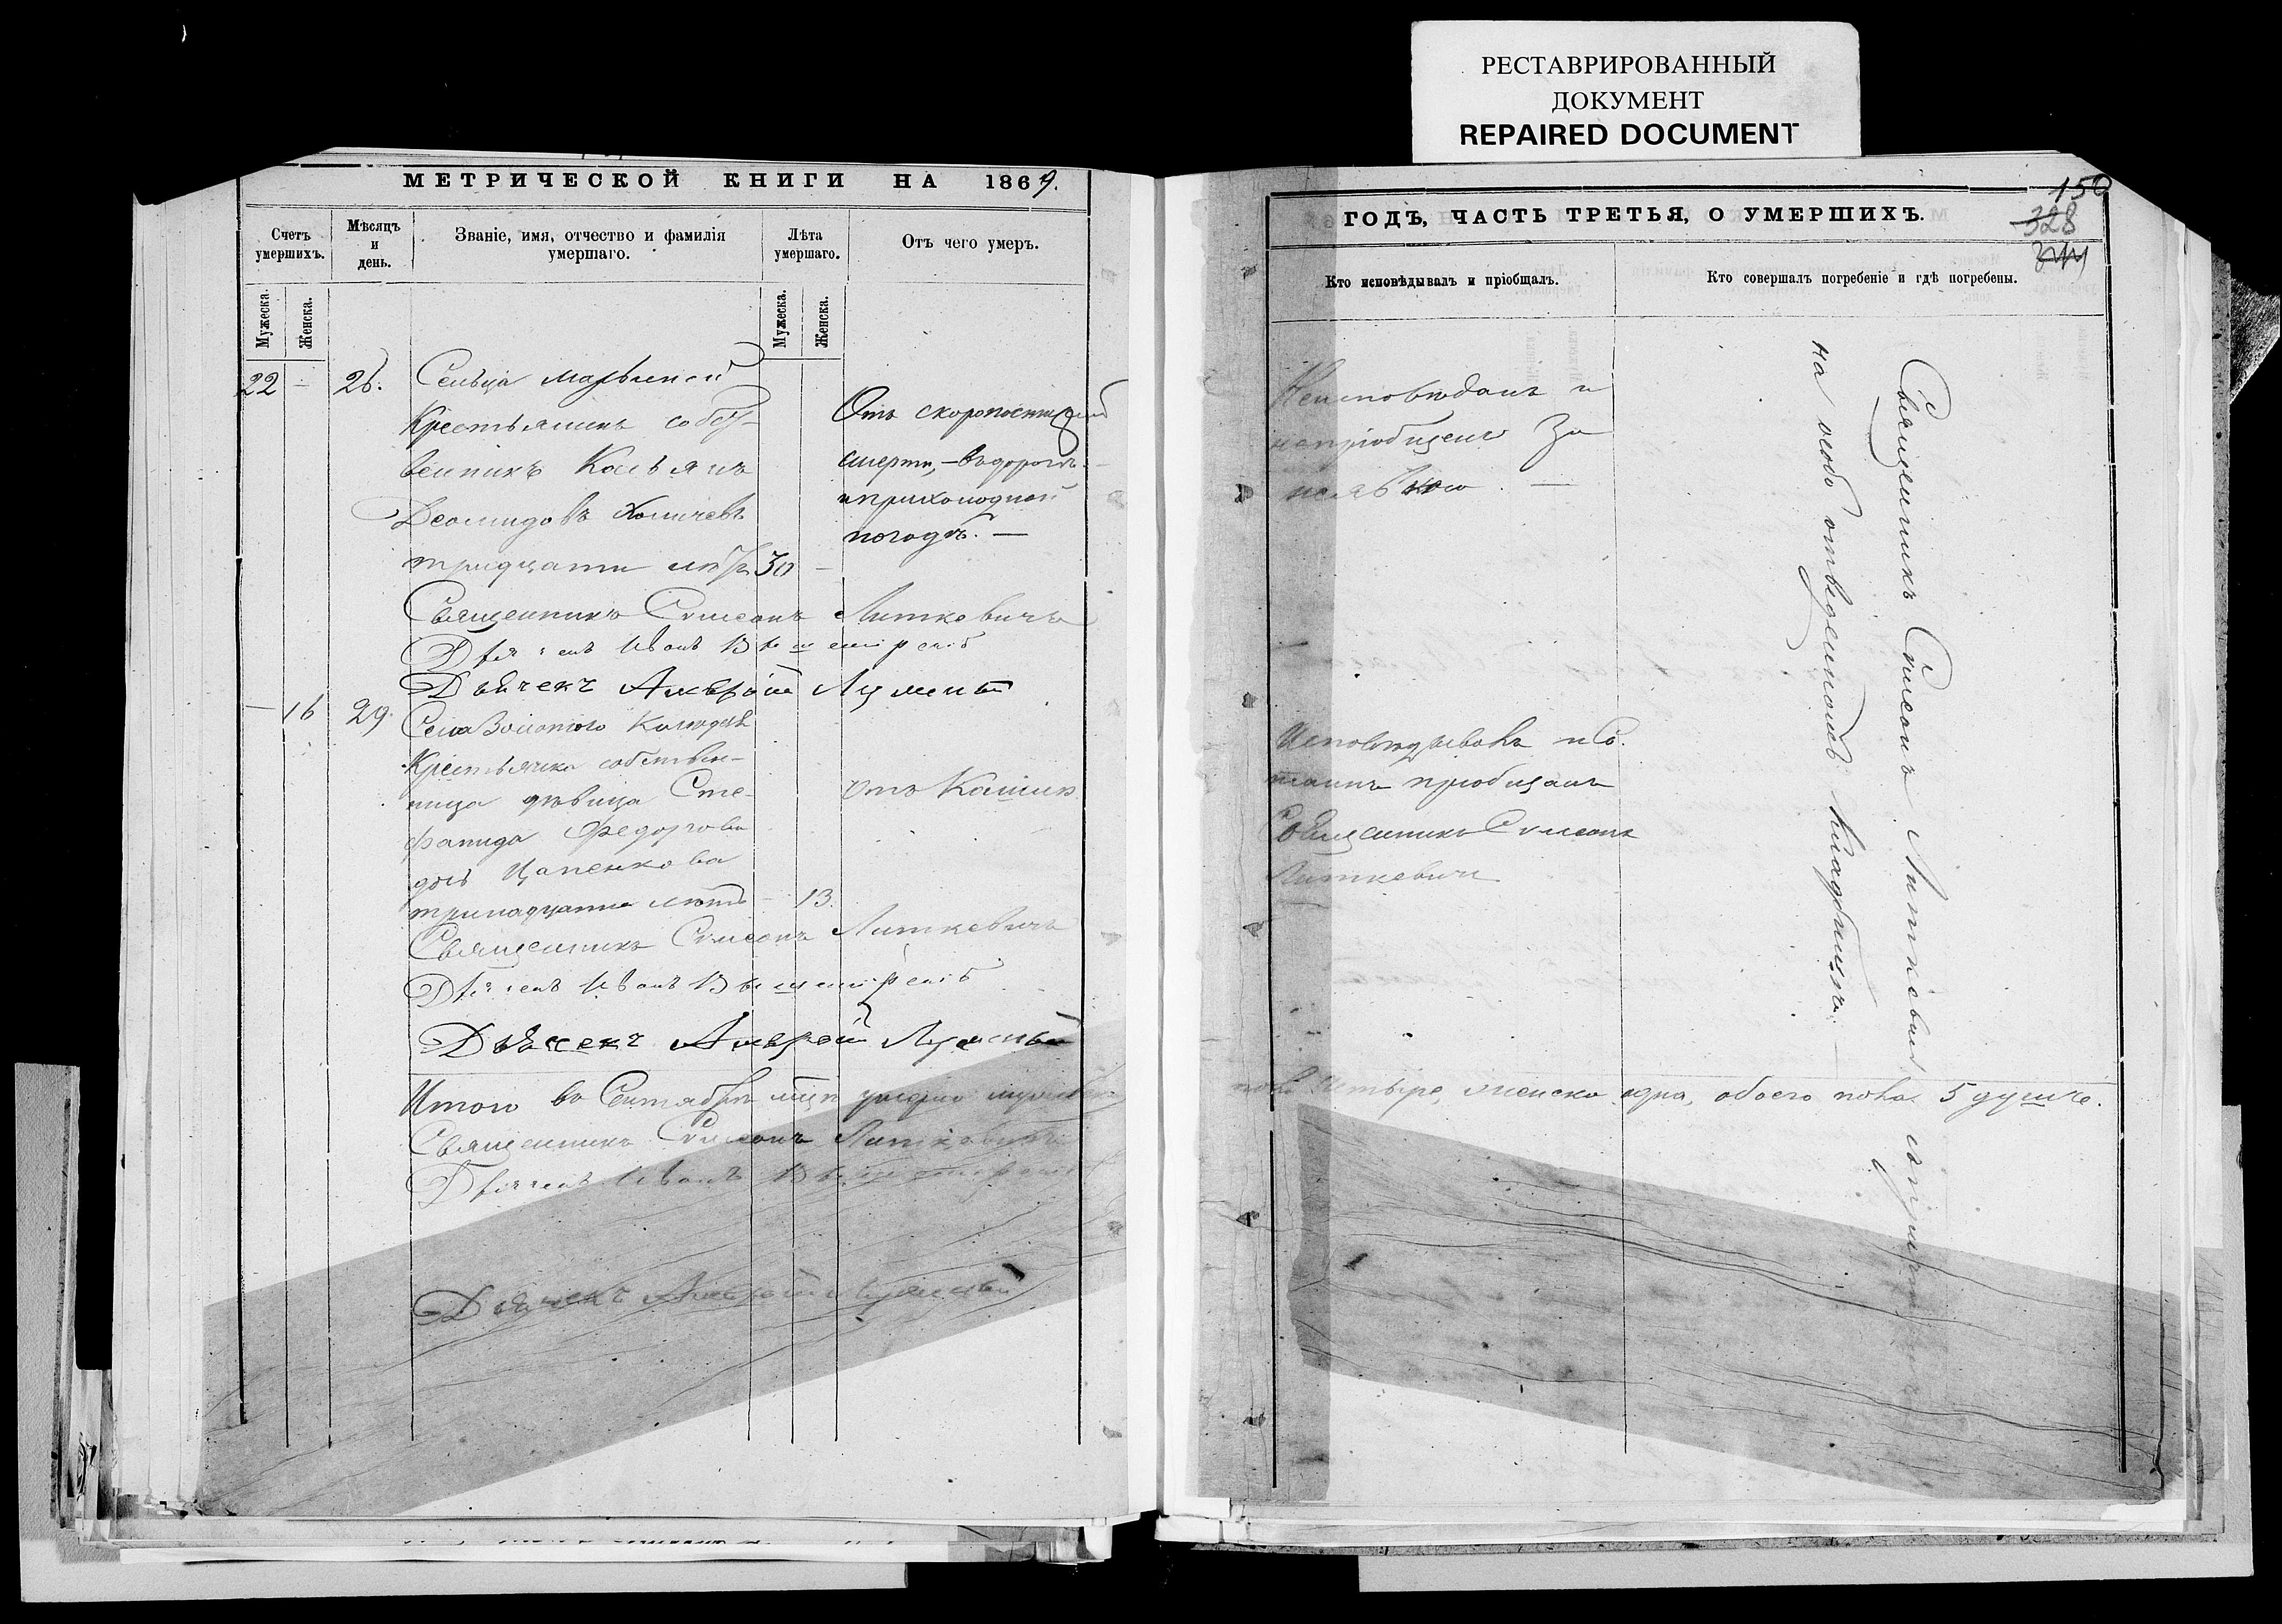 РЕСТАВРИРОВАННЫЙ
ДОКУМЕНТ
REPAIRED DOCUMENT
МЕТРИЧЕСКОЙ КНИГИ НА 1869.
Счетъ умершихъ.
Мѣсяцъ и день.
Званіе, имя, отчество и фамилія умершаго.
Лѣта умершаго.
Отъ чего умеръ.
Мужеска.
Женска.
Мужеска.
Женска.
22 — 26. Сельца
Крестьянинъ собст-
венникъ Касьянъ
Деомидовъ
тридцати лѣтъ 30 —
Отъ скоропостижной
смерти, — въ дорогѣ
при холодной
погодѣ. —
Священникъ Симеонъ Литкевичъ
Дьячекъ Иванъ
Дьячекъ
— 16 29. Села Золотого Колодезя
Крестьянка собствен-
ница дѣвица Сте-
фанида Федорова
дочь Цапенкова
тринадцати лѣтъ — 13.
отъ Кашля
Священникъ Симеонъ Литкевичъ
Дьячекъ Иванъ
Дьячекъ
Итого въ Сентябрѣ мцѣ умерло мужеска
Священникъ Симеонъ Литкевичъ
Дьячекъ Иванъ
Дьячекъ
150
328
ГОДЪ, ЧАСТЬ ТРЕТЬЯ, О УМЕРШИХЪ.
Кто исповѣдывалъ и пріобщалъ.
Кто совершалъ погребеніе и гдѣ погребены.
Неисповѣданъ и
непріобщенъ За
неявкою. —
Исповѣдывалъ и Св.
таинъ пріобщалъ
Священникъ Симеонъ
Литкевичъ
Священникъ Симеонъ Литкевичъ съ причтомъ
на особо отведенномъ кладбищѣ.
пола четыре, женска одна, обоего пола 5 душъ.